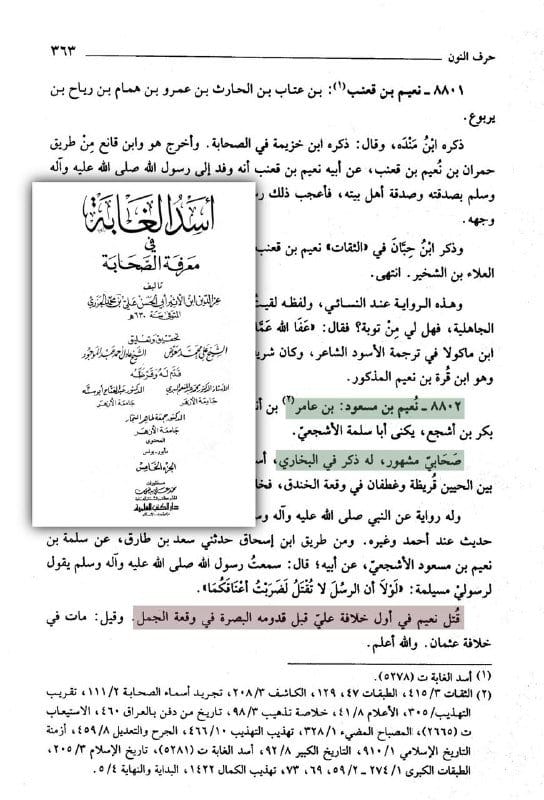 حرف النون ٣٦٣
٨٨٠١ ـ نعيم بن قعنب(١): بن عتاب بن الحارث بن عمرو بن همام بن رياح بن
يربوع.
ذكره ابْنُ مَنْدَه، وقال: ذكره ابن خزيمة في الصحابة. وأخرج هو وابن قانع مِنْ طريق
حمران بن نُعيم بن قعنب، عن أبيه نعيم بن قعنب أنه وفد إلى رسول الله صلى الله عليه وآله
وسلم بصدقته وصدقة أهل بيته، فأعجب ذلك رسو
وجهه.
وذكر ابْنُ حِبَّان في «الثقات» نعيم بن قعنب
العلاء بن الشخير. انتهى.
وهذه الرواية عند النسائي، ولفظه لقيتُ
الجاهلية، فهل لي مِنْ توبة؟ فقال: «عَفَا الله عَمَّا
ابن ماكولا في ترجمة الأسود الشاعر، وكان شري
وهو ابن قُرة بن نعيم المذكور.
٨٨٠٢ ـ نُعيم بن مسعود: بن عامر(٢) بن أن
بكر بن أشجع، يكنى أبا سلمة الأشجعيّ.
صَحَابيّ مشهور، له ذكر في البخاري، أس
بين الحيين قُريظة وغطفان في وقعة الخندق، فخا
وله رواية عن النبي صلى الله عليه وآله وس
حديث عند أحمد وغيره. ومن طريق ابن إسحاق حدثني سعد بن طارق، عن سلمة بن
نعيم بن مسعود الأشجعيّ، عن أبيه؛ قال: سمعتُ رسول الله صلى الله عليه وآله وسلم يقول
لرسوليْ مسيلمة: «لَوْلاَ أن الرسُلَ لا تُقْتَلُ لَضَرَبْتُ أعْنَاقَكُمَا».
قُتل نعيم في أول خلافة عليّ قبل قدومه البصرة في وقعة الجمل. وقيل: مات في
خلافة عثمان. والله أعلم.
(١) أسد الغابة ت (٥٢٧٨).
(٢) الثقات ٤١٥/٣، الطبقات ٤٧، ١٢٩، الكاشف ٢٠٨/٣، تجريد أسماء الصحابة ١١١/٢، تقريب
التهذيب/٣٠٥، الأعلام ٤١/٨، خلاصة تذهيب ٩٨/٣، تاريخ من دفن بالعراق ٤٦٠، الاستيعاب
ت (٢٦٦٥)، المصباح المضيء ٣٢٨/١، تهذيب التهذيب ٤٦٦/١٠، الجرح والتعديل ٤٥٩/٨، أزمنة
التاريخ الإسلامي ٩١٠/١، التاريخ الكبير ٩٢/٨، أسد الغابة ت (٥٢٨١)، تاريخ الإسلام ٢٠٥/٣،
الطبقات الكبرى ٢٧٤/١ ـ ٥٩/٢، ٦٩، ٧٣، تهذيب الكمال ١٤٢٢، البداية والنهاية ٥/٤.
أسد الغابة
في
معرفة الصحابة
تأليف
عز الدين ابن الأثير أبي الحسن علي بن محمد الجزري
المتوفى سنة ٦٣٠هـ
تحقيق وتعليق
الشيخ علي محمد معوض الشيخ عادل أحمد عبد الموجود
قدم له وقرظه
الأستاذ الدكتور محمد عبد المنعم البري الدكتور عبد الفتاح أبو سنة
جامعة الأزهر جامعة الأزهر
الدكتور جمعة طاهر النجار
جامعة الأزهر
المحتوى
الجزء الخامس
دار الكتب العلمية